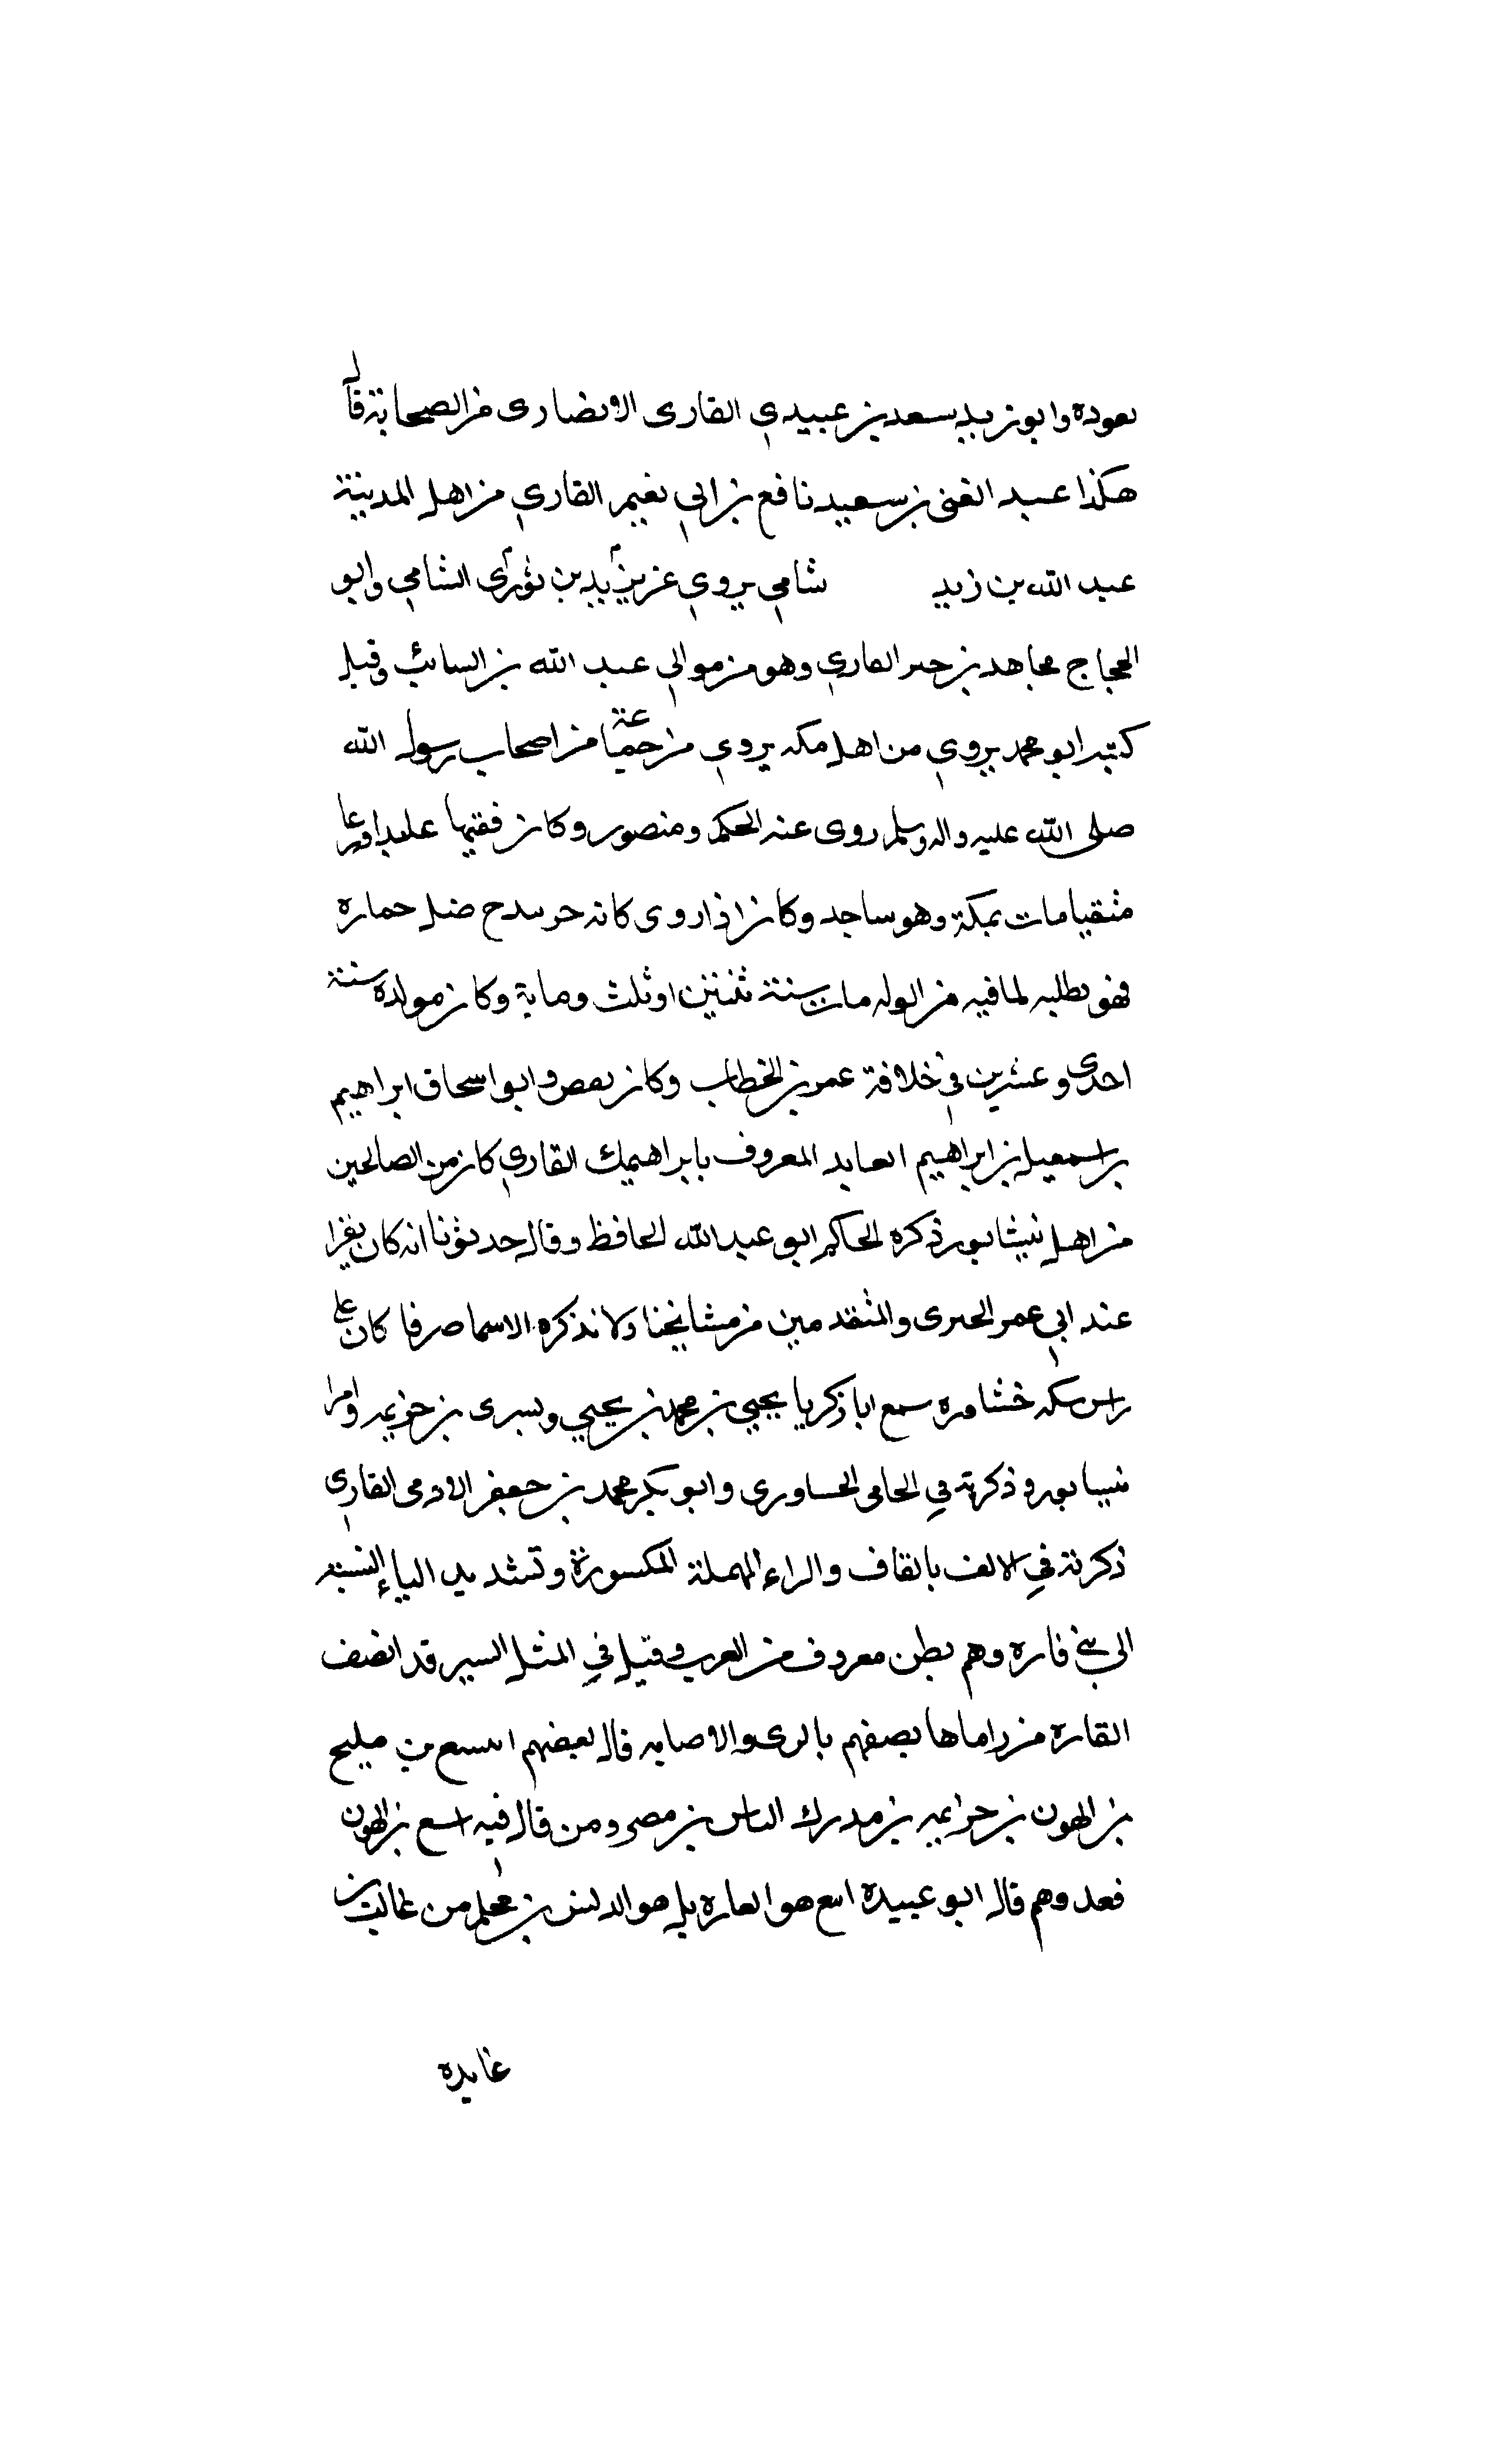 يعوده وابو زيد سعد بن عبيدي القارى الانصارى من الصحابة قال
هكذا عبد الغنى بن سعيد نافع بن ابي نعيم القاري من اهل المدينة
عبد الله بن زيد شامي يروي عن يزيد بن ثور الشامي وابو
الحجاج مجاهد بن جبر القاري وهو من موالي عبد الله بن السائب وقيل
كنيته ابو محمد يروي من اهل مكه يروي من جماعة من اصحاب رسول الله
صلى الله عليه واله وسلم روى عنه الحكم ومنصور وكان فقيها عابدا ورعا
متقيا مات بمكة وهو ساجد وكان اذا روى كانه حر سدح ضل حماره
فهو يطلبه لما فيه من الوله مات سنة ثنتين او ثلث وماية وكان مولده سنة
احدى وعشرين في خلافة عمر بن الخطاب وكان يقص وابو اسحاق ابراهيم
بن اسمعيل بن ابراهيم العابد المعروف بابراهيمك القاري كان من الصالحين
من اهل نيشابور ذكره الحاكم ابو عبد الله الحافظ وقال حدثونا انه كان يقرا
عند ابي عمر الحيرى والمتقدمين من مشايخنا ولا نذكره الا سماصرفا كان على
راس سكه خشاوره سمع ابا زكريا يحيي بن محمد بن يحيي وبسرى بن خزيمه وامرا
نيسابور وذكرته في الحامى الحساورى وابو بكر محمد بن جعفر الادمى القارى
ذكرته في الالف بالقاف والراء المهملة المكسورة وتشديد الياء النسبته
الى بني قاره وهم بطن معروف من العرب وقيل في المثل السير قد انصف
القاره من راماها يصفهم بالرمى والاصابه قال بعضهم ايسع بن مليح
بن الهون بن خزيمه بن مدرك الياس بن مضر ومن قال فيه اسع بن الهون
فعد وهم قال ابو عبيدة اسع هو القاره بل هو الديش بن محلم من غالب بن
عايده